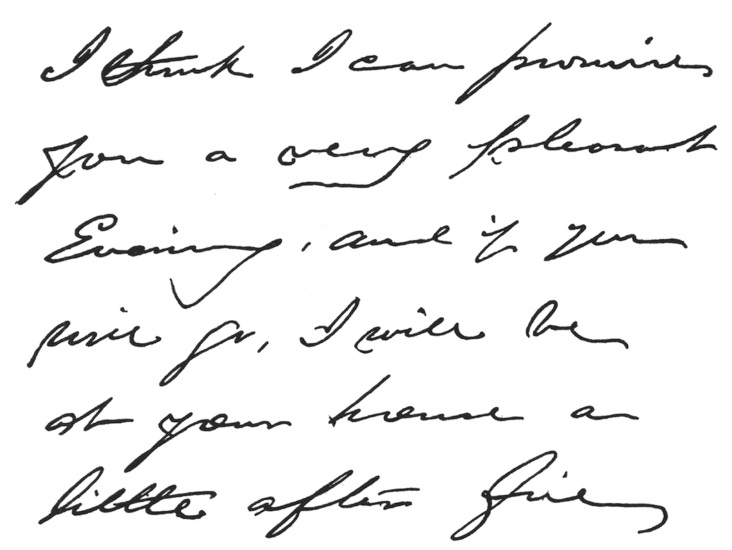 I think I can promise
you a very pleasant
Evening, and if you
will go, I will be
at your house a
little after five,